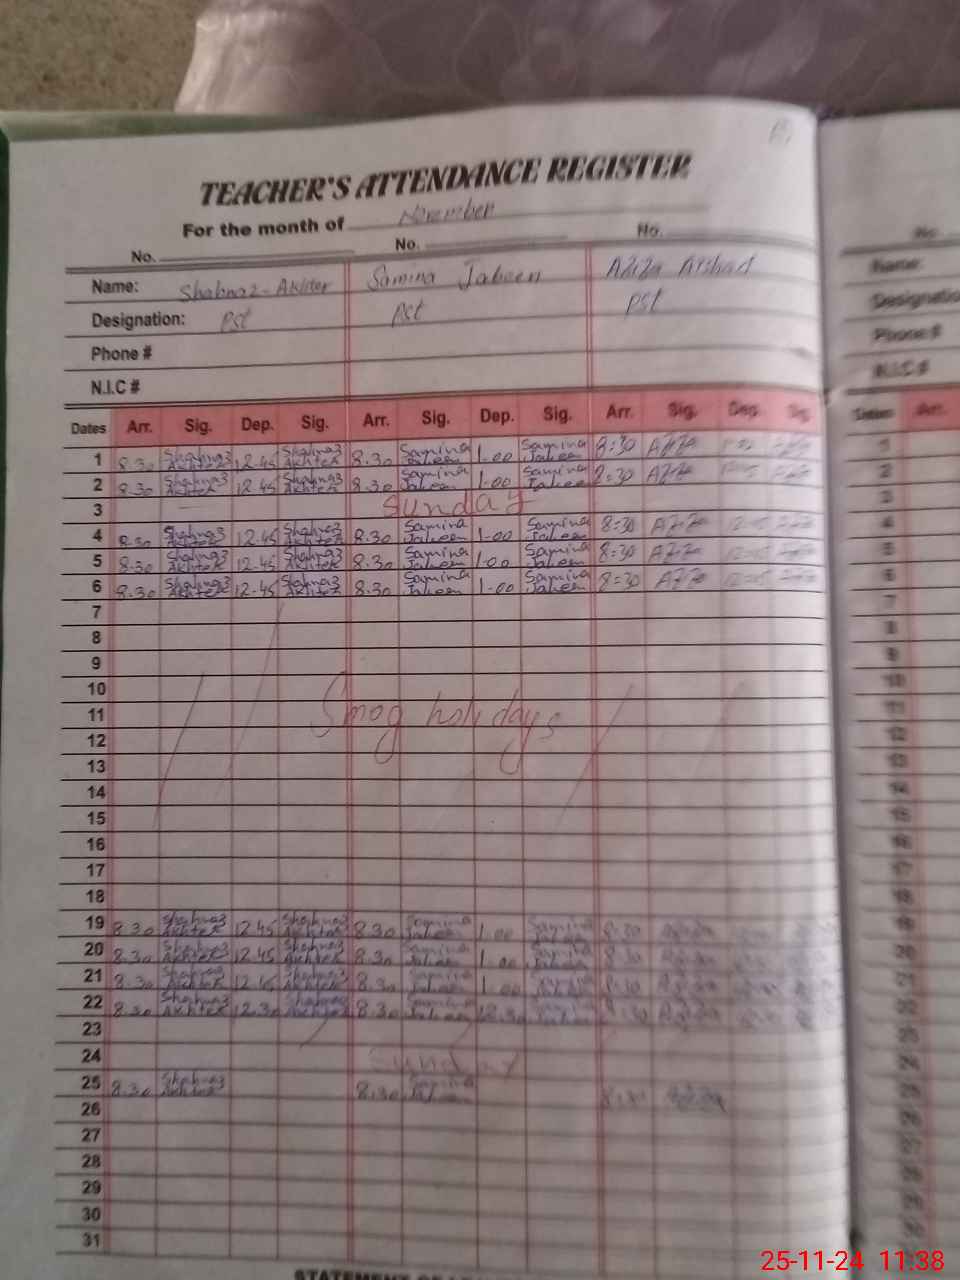 TEACHER'S ATTENDANCE REGISTER
For the month of November
No. No. No.
Name: Shahnaz-Akhter Samina Jabeen Aziza Arshad
Designation: Pst Pst Pst
Phone #
N.I.C #
Dates Arr. Sig. Dep. Sig. Arr. Sig. Dep. Sig. Arr. Sig. Dep. Sig.
1 8.30 Shahnaz Akhter 12.45 Shahnaz Akhter 8.30 Samina Jabeen 1-00 Samina Jabeen 8:30 Aziza
2 8.30 Shahnaz Akhter 12.45 Shahnaz Akhter 8.30 Samina Jabeen 1-00 Samina Jabeen 8:30 Aziza
3 Sunday
4 8.30 Shahnaz Akhter 12.45 Shahnaz Akhter 8.30 Samina Jabeen 1-00 Samina Jabeen 8:30 Aziza
5 8.30 Shahnaz Akhter 12.45 Shahnaz Akhter 8.30 Samina Jabeen 1-00 Samina Jabeen 8:30 Aziza
6 8.30 Shahnaz Akhter 12.45 Shahnaz Akhter 8.30 Samina Jabeen 1-00 Samina Jabeen 8:30 Aziza
7
8
9
10
11 Smog holidays
12
13
14
15
16
17
18
19 8.30 Shahnaz Akhter 12.45 Shahnaz Akhter 8.30 Samina Jabeen 1.00 Samina Jabeen 8:30 Aziza
20 8.30 Shahnaz Akhter 12.45 Shahnaz Akhter 8.30 Samina Jabeen 1.00 Samina Jabeen 8:30 Aziza
21 8.30 Shahnaz Akhter 12.45 Shahnaz Akhter 8.30 Samina Jabeen 1.00 8:30 Aziza
22 8.30 Shahnaz Akhter 12.30 Shahnaz Akhter 8.30 Samina Jabeen 12.30 8:30 Aziza
23
24 Sunday
25 8.30 Shahnaz Akhter 8.30 Samina Jabeen Aziza
26
27
28
29
30
31
25-11-24 11:38